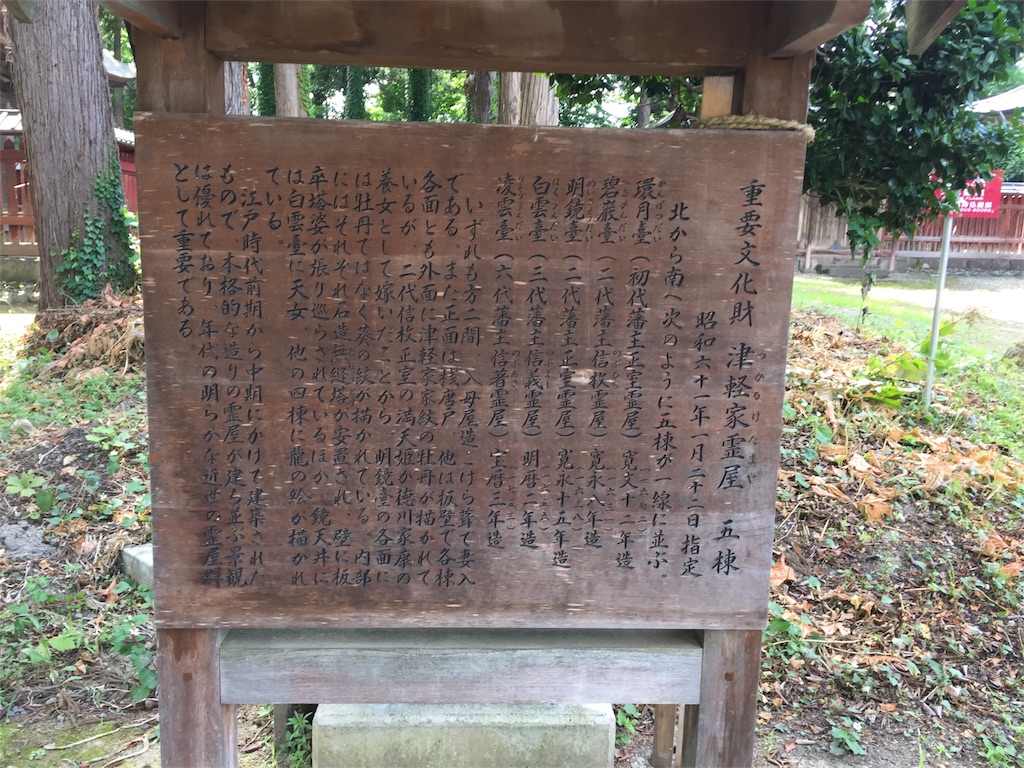 重要文化財 津軽家霊屋 五棟
つがるけたまや
昭和六十一年一月二十二日指定
北から南へ次のように五棟が一線に並ぶ。
環月臺（初代藩主正室霊屋）寛文十二年造
かんげつだい
碧巌臺（二代藩主信枚霊屋）寛永八年造
へきがんだい
明鏡臺（二代藩主正室霊屋）寛永十五年造
めいきょうだい
白雲臺（三代藩主信義霊屋）明暦二年造
はくうんだい
凌雲臺（六代藩主信著霊屋）宝暦三年造
りょううんだい
いずれも方二間、入母屋造、こけら葺で妻入
である。また正面は桟唐戸、他は板壁で各棟
各面とも外面に津軽家家紋の牡丹が描かれて
いるが、二代信枚正室の満天姫が徳川家康の
養女として嫁いたことから、明鏡臺の各面に
は牡丹ではなく葵の紋が描かれている。内部
にはそれぞれ石造無縫塔が安置され、壁に板
卒塔婆が張り巡らされているほか、鏡天井に
は白雲臺に天女、他の四棟に龍の絵が描かれ
ている。
江戸時代前期から中期にかけて建築された
もので、本格的な造りの霊屋が建ち並ぶ景観
は優れており、年代の明らかな近世の霊屋群
として重要である。